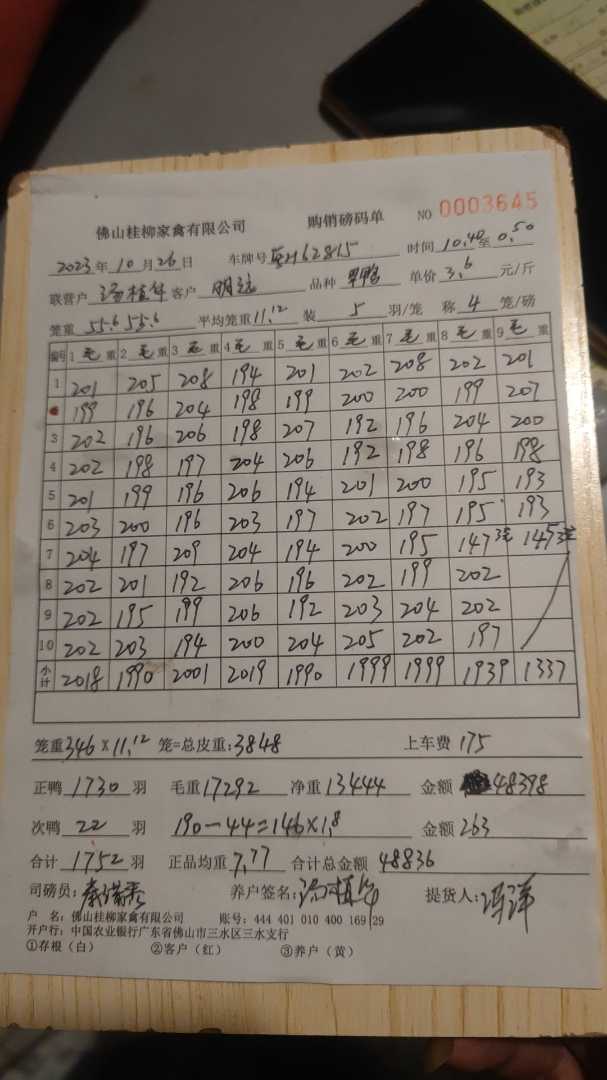 佛山桂柳家禽有限公司 购销磅码单 NO 0003645
2023年10月26日 车牌号 粤H62815 时间 10.40至0.50
联营户 汤植年 客户 品种 单价 3.6 元/斤
笼重 55.6 55.6 平均笼重 11.12 装 5 羽/笼 称 4 笼/磅
编号 1 毛重 2 毛重 3 毛重 4 毛重 5 毛重 6 毛重 7 毛重 8 毛重 9 毛重
1 201 205 208 194 201 202 208 202 201
199 196 204 198 199 200 200 199 207
3 202 196 206 198 207 192 196 204 200
4 202 198 197 204 206 192 198 196 198
5 201 199 196 206 194 201 200 195 193
6 203 200 196 203 197 202 197 195 193
7 204 197 209 204 194 200 195 147 3笼 145 3笼
8 202 201 192 206 196 202 199 202
9 202 195 199 206 192 203 204 202
10 202 203 194 200 204 205 202 197
小计 2018 1990 2001 2019 1990 1999 1999 1939 1337
笼重 346 × 11.12 笼=总皮重: 3848 上车费 175
正鸭 1730 羽 毛重 17292 净重 13444 金额 48398
次鸭 22 羽 190-44=146×1.8 金额 263
合计 1752 羽 正品均重 7.77 合计总金额 48836
司磅员: 养户签名: 汤植年 提货人:
户 名: 佛山桂柳家禽有限公司 账号: 444 401 010 400 169 29
开户行: 中国农业银行广东省佛山市三水区三水支行
①存根(白) ②客户(红) ③养户(黄)